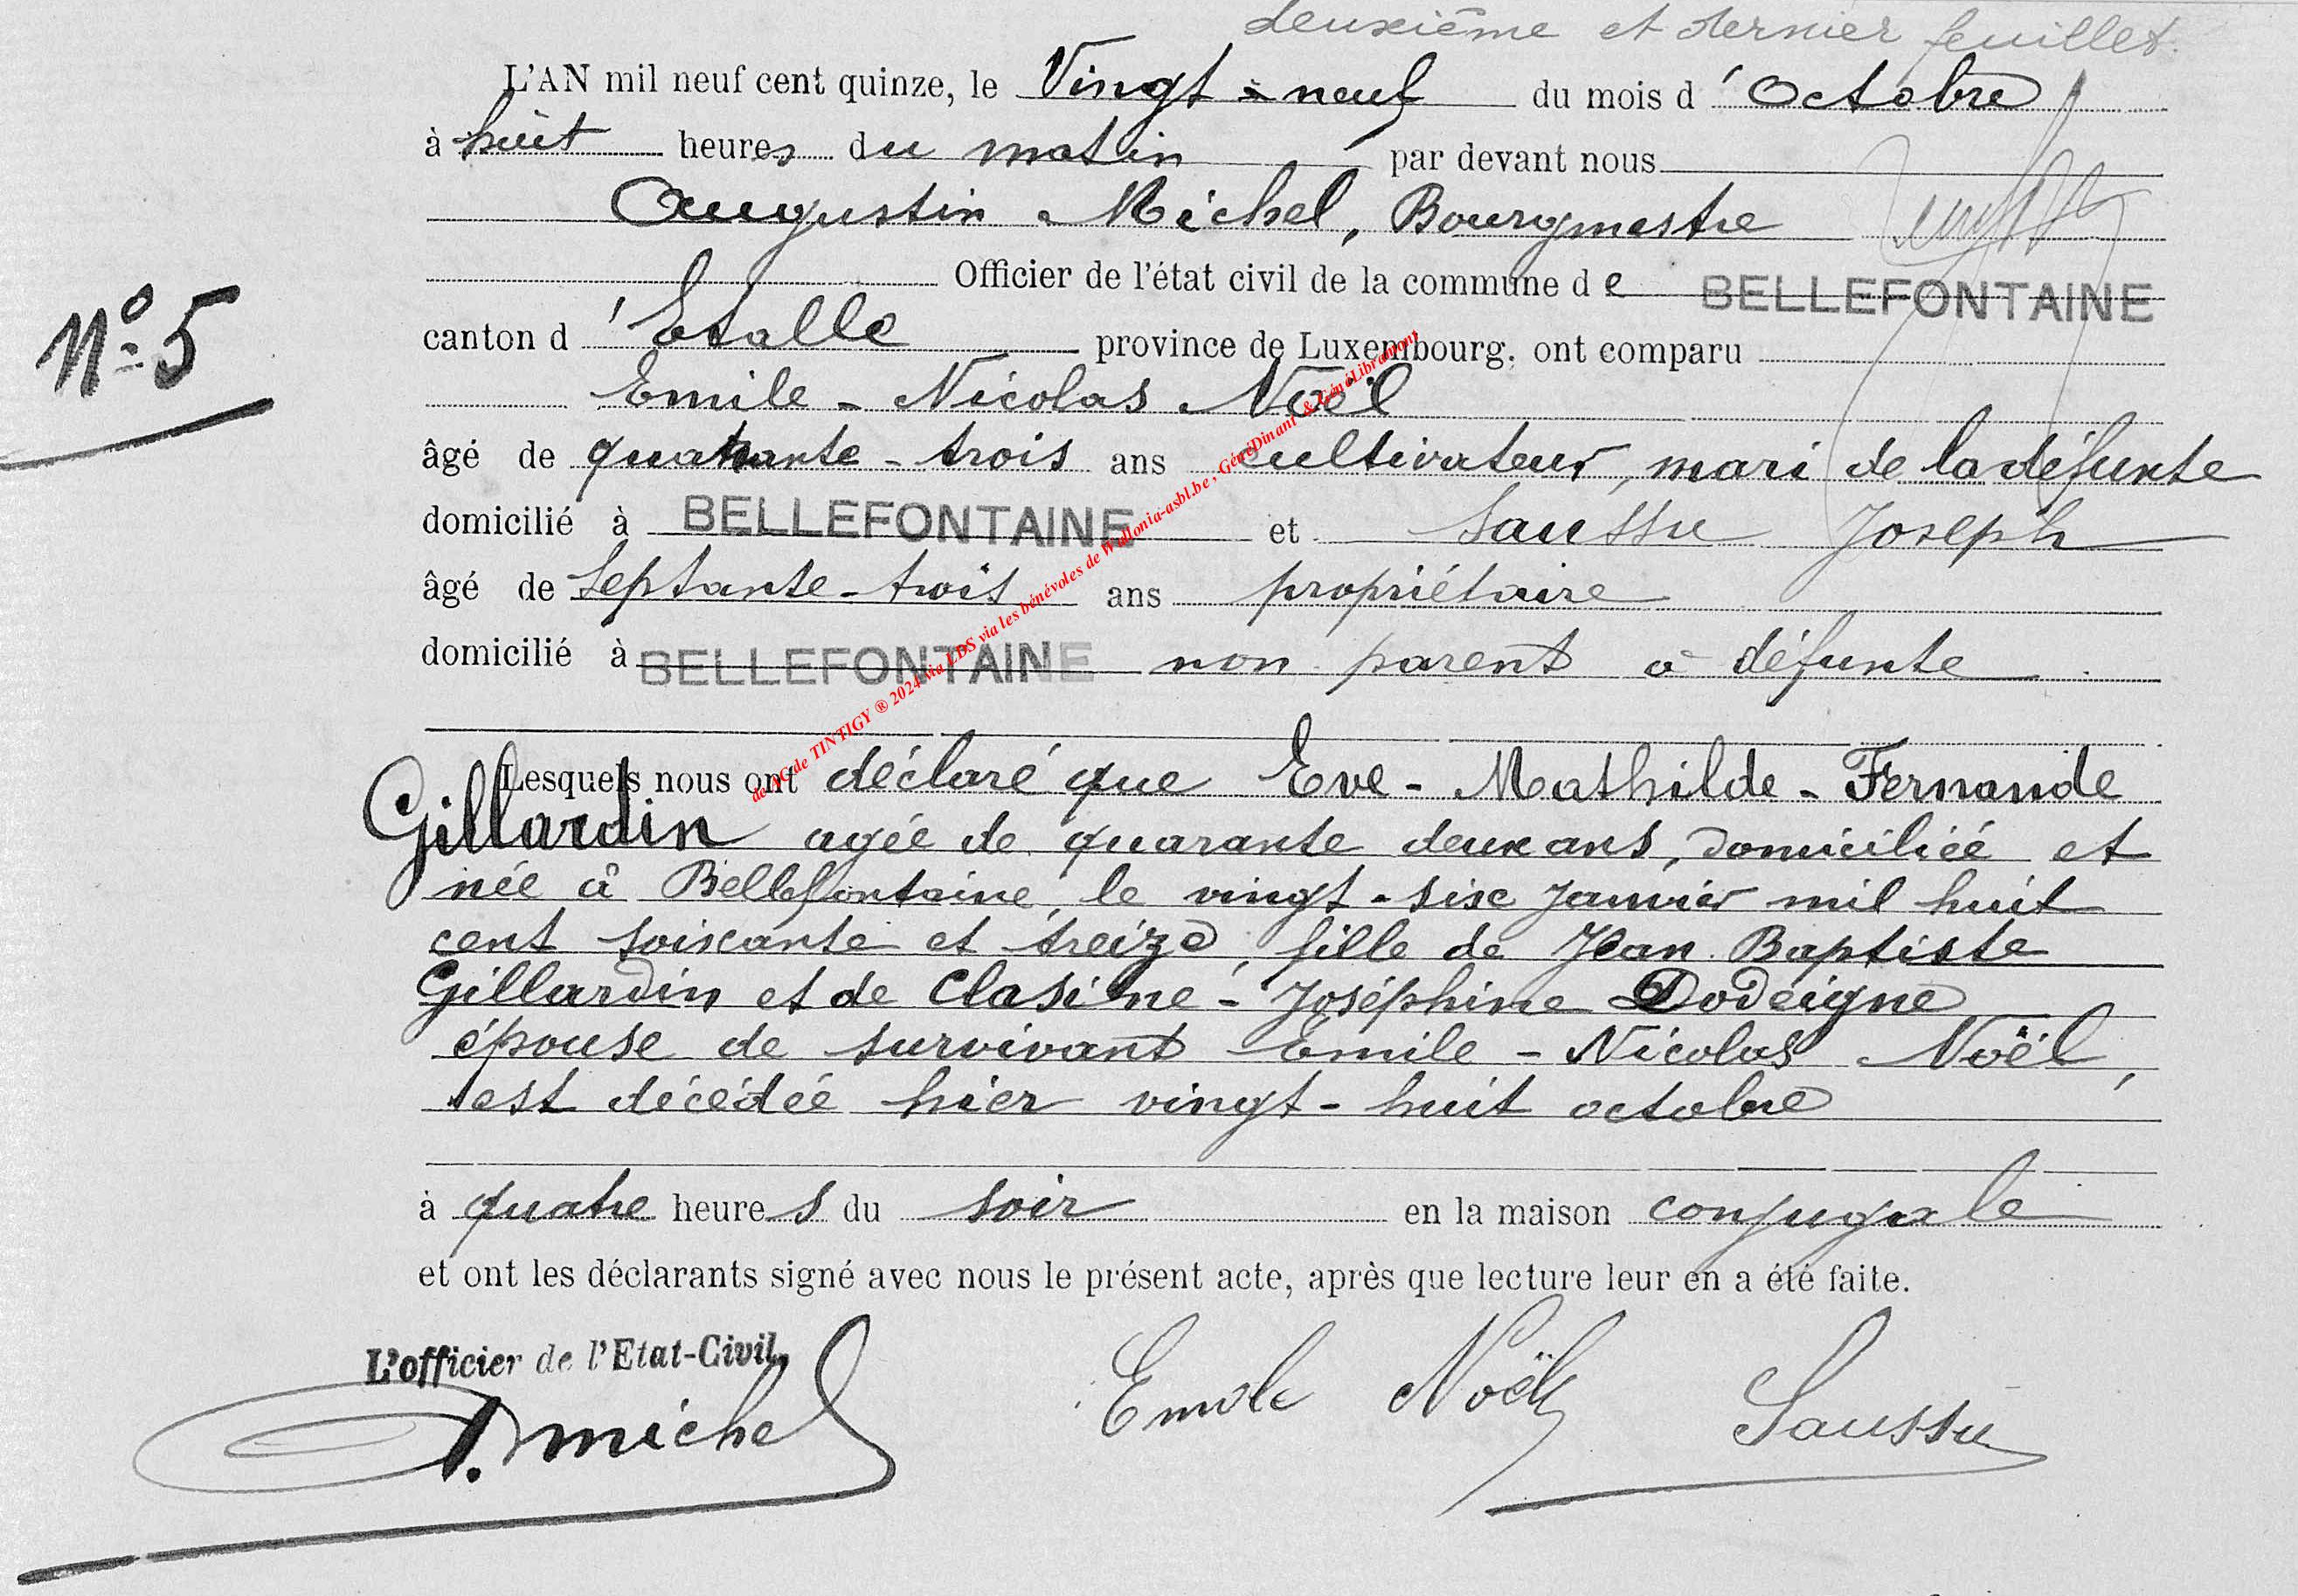 deuxième et dernier feuillet.
L'AN mil neuf cent quinze, le Vingt-neuf du mois d'Octobre
à huit heures du matin par devant nous
Augustin Michel, Bourgmestre
Officier de l'état civil de la commune de BELLEFONTAINE
N° 5
canton d'Etalle province de Luxembourg, ont comparu
Emile-Nicolas Noël
âgé de quarante-trois ans cultivateur, mari de la défunte
domicilié à BELLEFONTAINE et Saussu Joseph
âgé de septante-trois ans propriétaire
domicilié à BELLEFONTAINE non parent à défunte
de AG de TINTIGY ® 2024 via LDS via les bénévoles de Wallonia-asbl.be, GénéDinant & GénéLibramont
Lesquels nous ont déclaré que Eve-Mathilde-Fernande
Gillardin agée de quarante deux ans, domiciliée et
née à Bellefontaine, le vingt-six Janvier mil huit
cent soixante et treize, fille de Jean Baptiste
Gillardin et de Clasine-Joséphine Dodeigne
épouse de survivant Emile-Nicolas Noël,
est décédée hier vingt-huit octobre
à quatre heures du soir en la maison conjugale
et ont les déclarants signé avec nous le présent acte, après que lecture leur en a été faite.
L'officier de l'Etat-Civil,
A. Michel Emile Noël Saussu